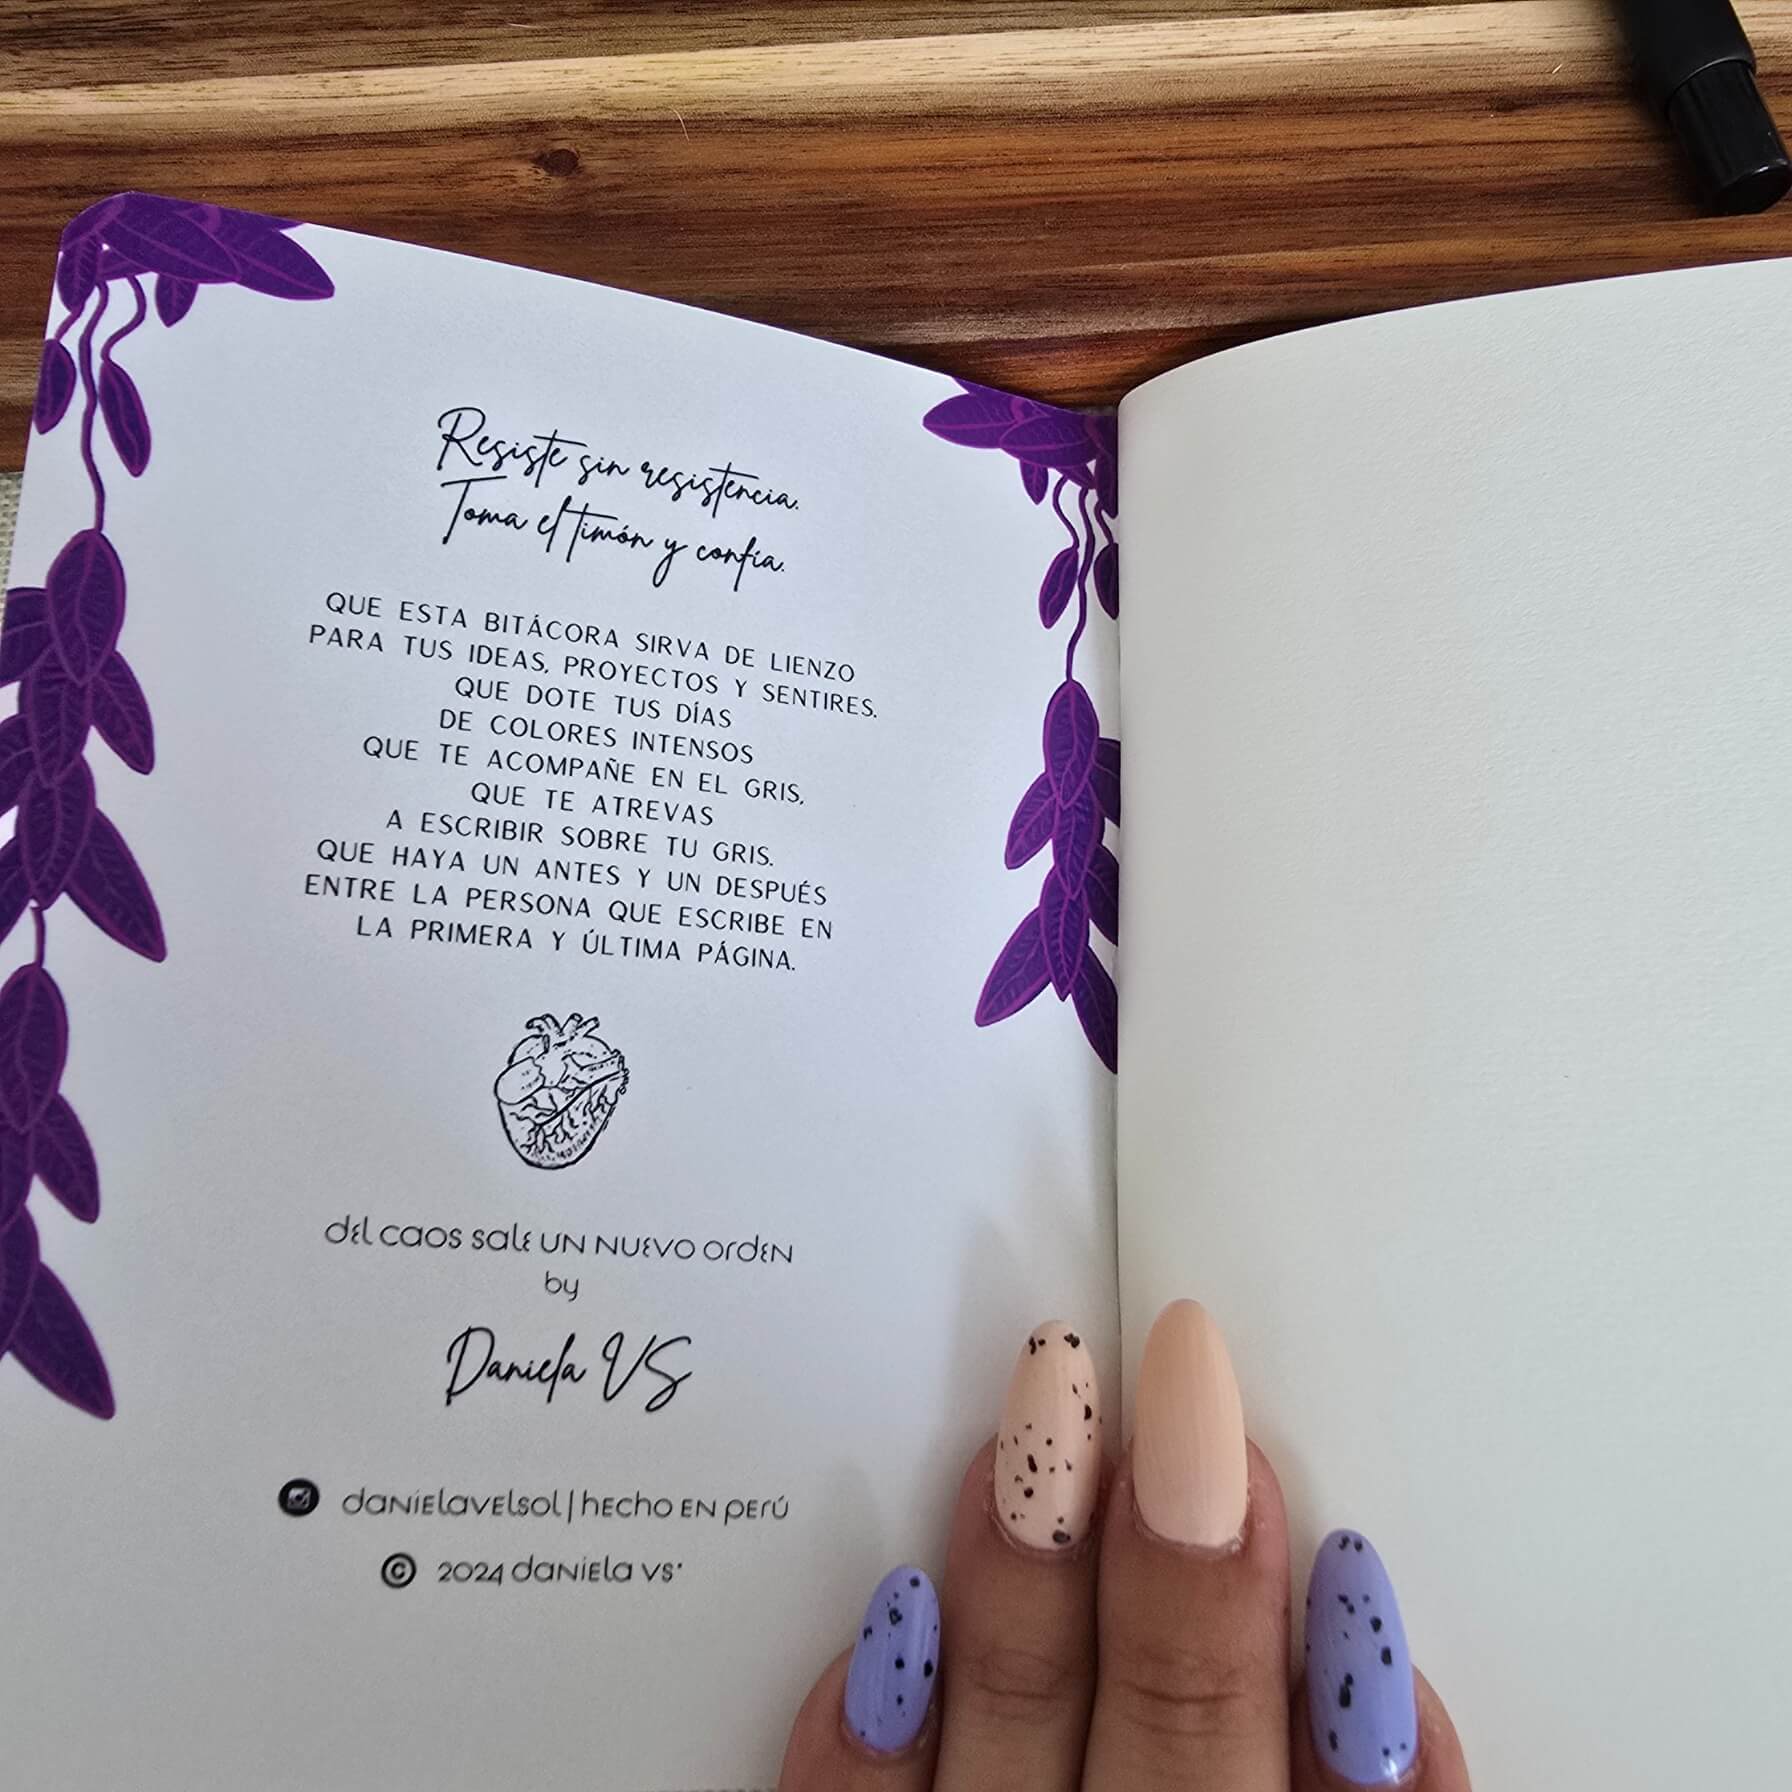 Resiste sin resistencia.
Toma el timón y confía.
QUE ESTA BITÁCORA SIRVA DE LIENZO
PARA TUS IDEAS, PROYECTOS Y SENTIRES.
QUE DOTE TUS DÍAS
DE COLORES INTENSOS
QUE TE ACOMPAÑE EN EL GRIS,
QUE TE ATREVAS
A ESCRIBIR SOBRE TU GRIS.
QUE HAYA UN ANTES Y UN DESPUÉS
ENTRE LA PERSONA QUE ESCRIBE EN
LA PRIMERA Y ÚLTIMA PÁGINA.
del caos sale un nuevo orden
by
Daniela VS
danielavelsol | hecho en perú
© 2024 daniela vs®